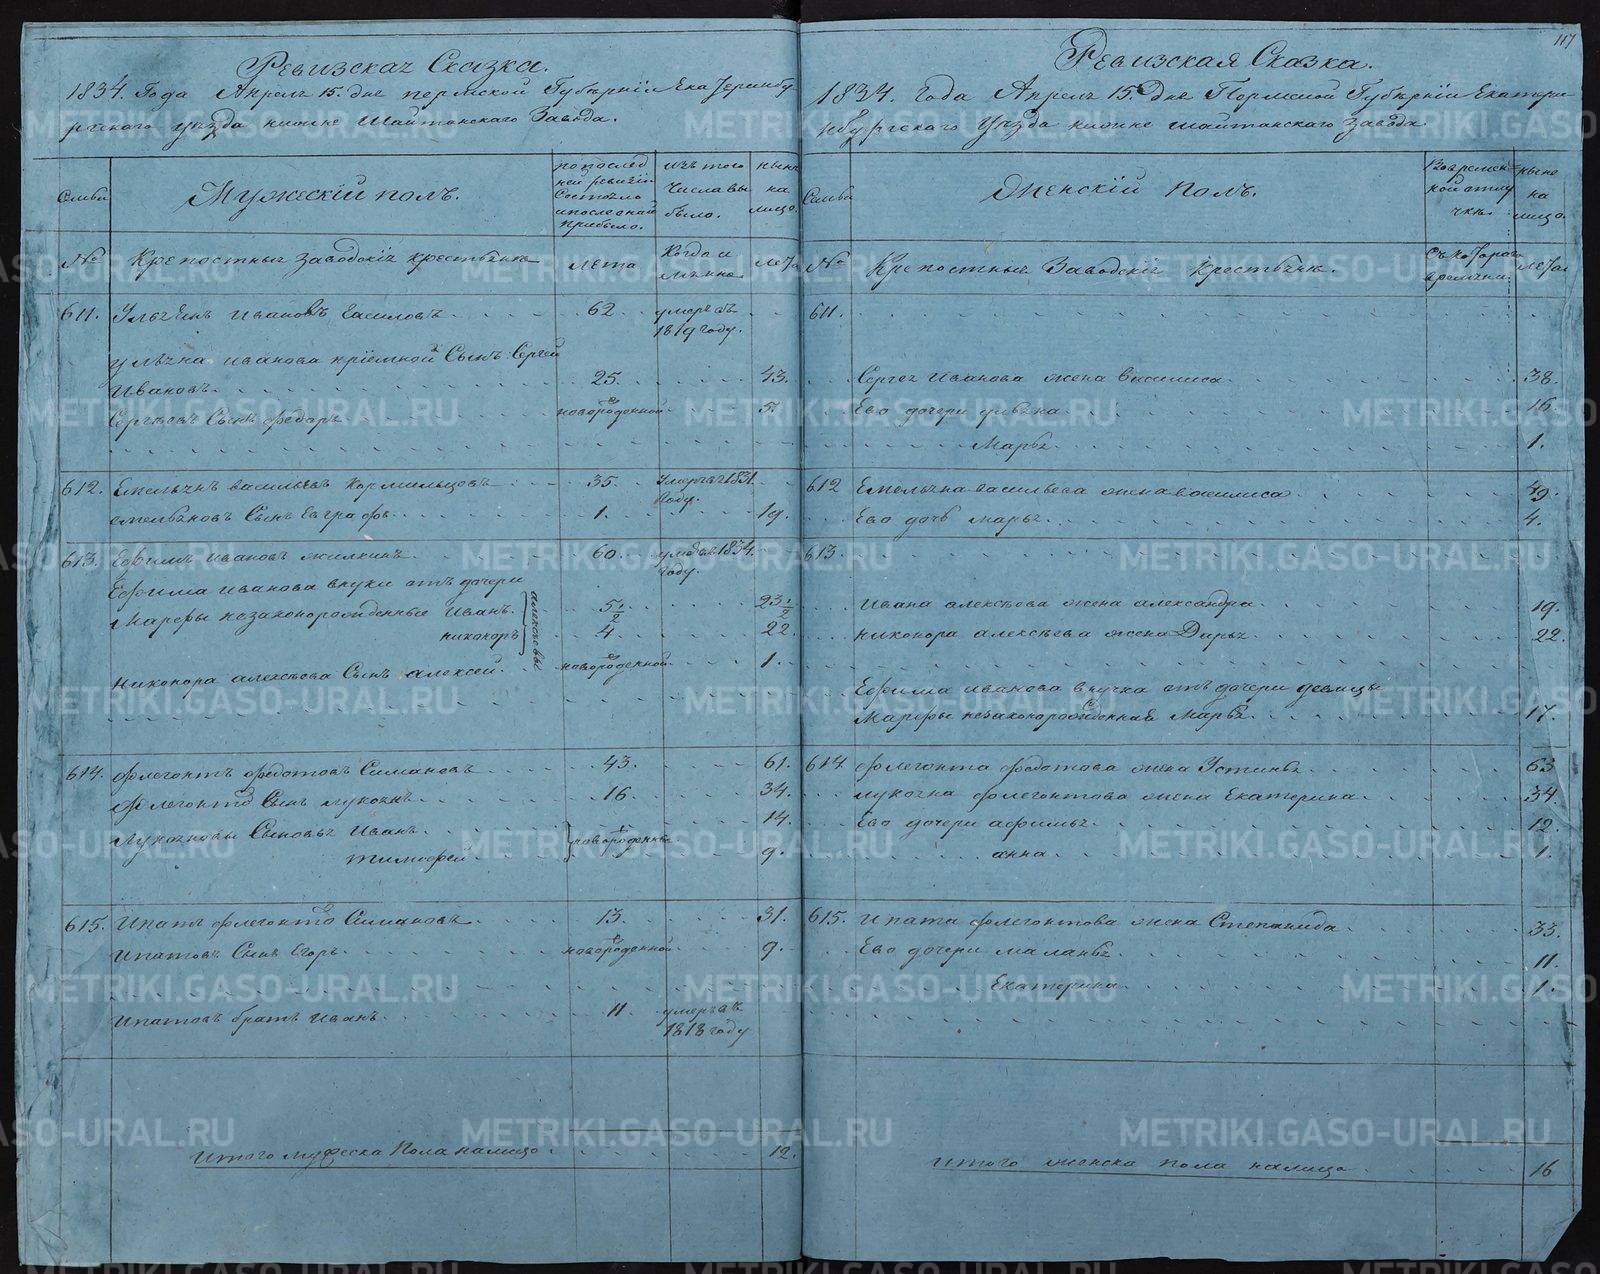 Ревизская Сказка.
1834. Года Апреля 15. дня пермской Губернiи Екатеринбу
ргскаго уезда нижне Шайтанскаго Завода.
Семьи
Мужескiй полъ.
по послед
ней ревизiи
Состояло
и после оной
прибыло.
изъ того
Числа вы
было.
ныне
на
лицо.
№
Крепостныя заводскiя крестьяне
лета
Когда и
лета
611.
Иванов
62.
умеръ въ
1819 году.
Иванова прiемной Сынъ Сергей
Ивановъ
25.
43.
Сергеевъ Сынъ Федоръ
новорожденной
5.
612.
Емельянъ васильевъ Кормильцовъ
35.
Умеръ въ 1831.
году.
емельяновъ Сынъ Евграфъ
1.
19.
613.
Ефимъ Ивановъ жилкинъ
60.
умеръ въ 1834.
году.
Ефима Иванова внуки отъ дочери
Марфы незаконорожденные Иванъ.
5 1/2
23 1/2
никоноръ
алексеевы
4.
22.
Никонора алексеева Сынъ алексей.
новорожденной
1.
614.
Флегонтъ Федотовъ Симановъ
43.
61.
Флегонта Сынъ лукоянъ
16.
34.
Лукояновы Сыновья Иванъ
новорожденны
14.
тимофей
9.
615.
Ипатъ Флегонтов Симановъ
13.
31.
Ипатовъ Сынъ Егоръ
новорожденной
9.
Ипатовъ братъ Иванъ
11
умеръ въ
1818 году
Итого мужеска Пола налицо
12.
117
Ревизская Сказка.
1834. Года Апреля 15. Дня Пермской Губернiи Екатерин
бургскаго Уезда нижне шайтанскаго завода
Семьи
Женскiй полъ.
Во времен
ной отлу
чке.
ныне
на
лицо.
№
Крепостныя Заводскiя Крестьяне.
Съ котораго
времяни.
лета
611.
Сергея Иванова жена василиса
38.
Ево дочери ульяна
16
Марья
1.
612
Емельяна васильева жена василиса
49.
Ево дочь марья
4.
613.
Ивана алексеева жена александра
19.
никонора алексеева жена Дарья
22.
Ефима иванова внучка отъ дочери девицы
Марфы незаконорожденная Марья
17.
614
Флегонта Федотова жена Устинья
63
лукояна флегонтова жена Екатерина
34.
Ево дочери афимья
12.
анна
1.
615.
Ипата флегонтова жена Степанида
35.
Ево дочери маланья
11.
Екатерина
1.
Итого женска пола налицо
16
METRIKI.GASO-URAL.RU